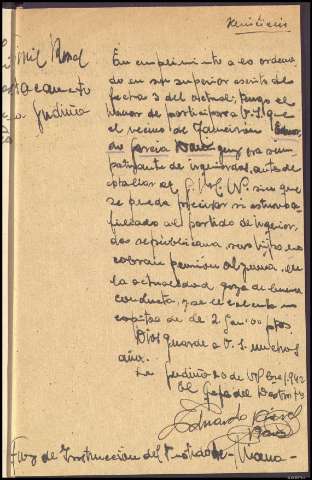 Guardia Civil Rural
Destacamento
La Gudiña
En cumplimiento a lo ordena-
do en su superior escrito de
fecha 3 del actual, tengo el
honor de participar a V.S. que
el vecino de
do Garcia que era sim-
patizante de izquierdas, antes de
estallar el G.M.N. sin que
se pueda precisar si estuvo a-
filiado al partido de izquier-
das republicana, sus hijos no
cobran pension alguna, en
la actualidad goza de buena
conducta, y se le calcula un
capital de 2 ptas
Dios guarde a V.S. muchos
años.
La Gudiña 20 de 1942
El Jefe del Destmtº
Eduardo
Juez de Instruccion del Partido de - Viana -